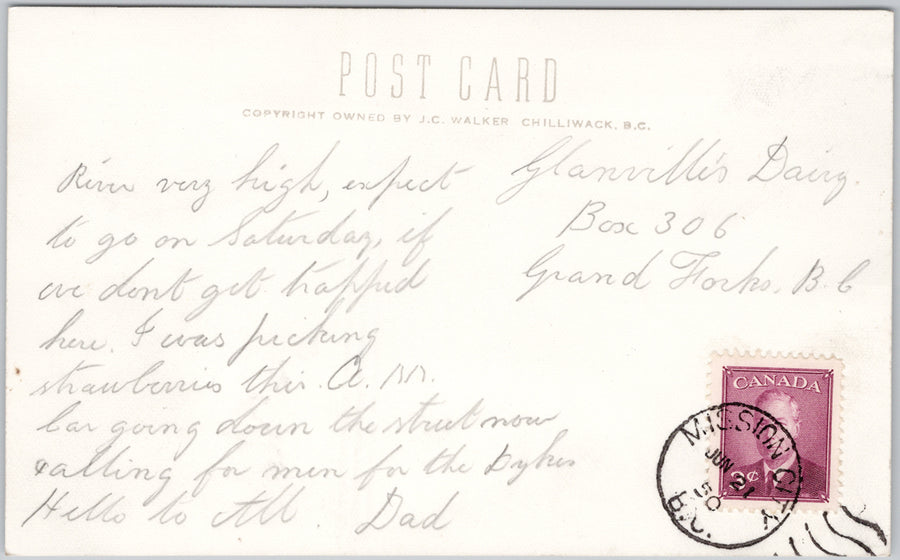 POST CARD
COPYRIGHT OWNED BY J.C. WALKER CHILLIWACK, B.C.
River very high, expect
to go on Saturday, if
we dont get trapped
here. I was picking
strawberries this A. M.
Car going down the street now
calling for men for the Dykes
Hello to All. Dad
Glanville's Dairy.
Box 306
Grand Forks. B.C
CANADA
3¢
MISSION CITY
JUN 21
50
B.C.